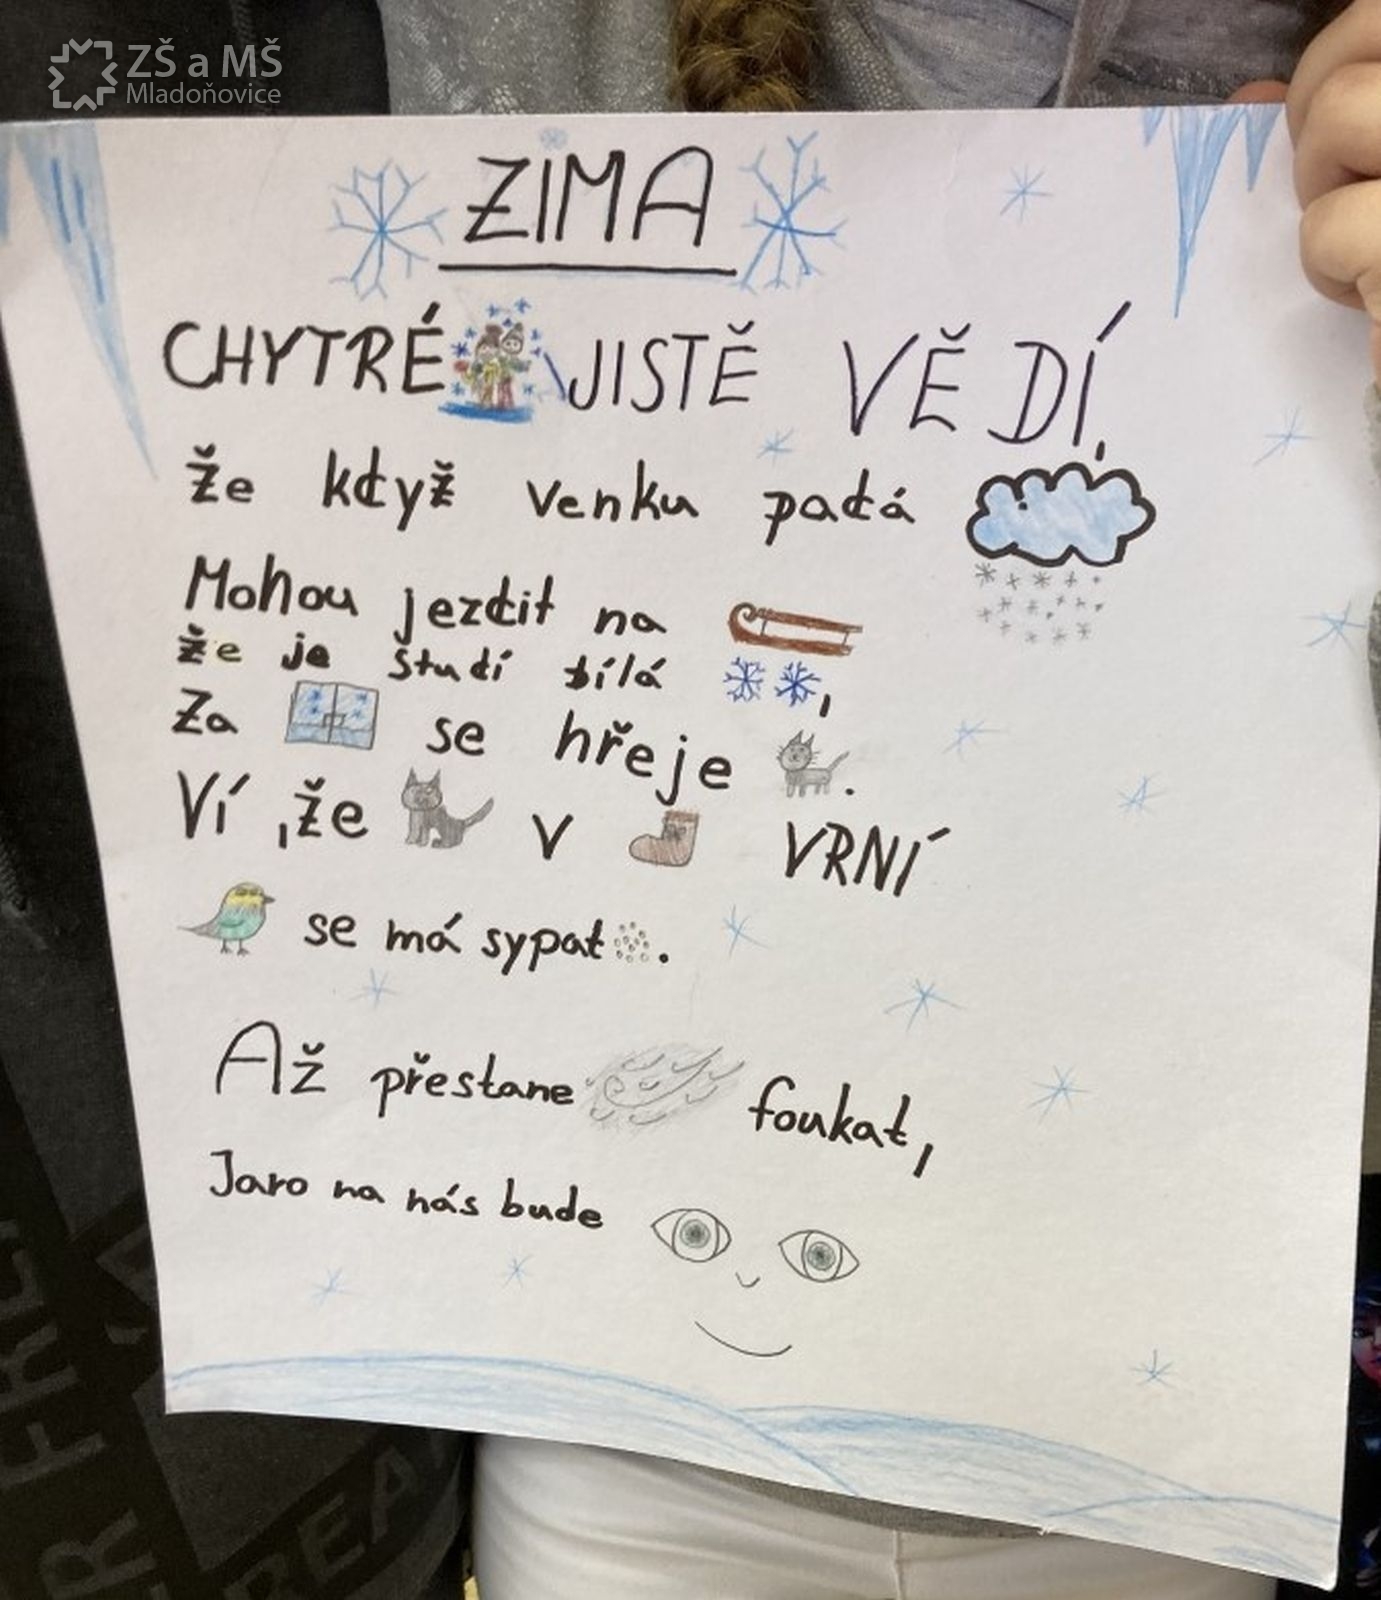 ZŠ a MŠ
Mladoňovice
ZIMA
CHYTRÉ JISTĚ VĚDÍ,
že když venku padá
Mohou jezdit na
že je studí bílá ,
Za se hřeje .
Ví ,že v VRNÍ
se má sypat .
Až přestane foukat,
Jaro na nás bude